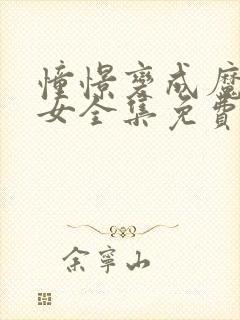 憧憬变成魔
女全集免费
余宁山